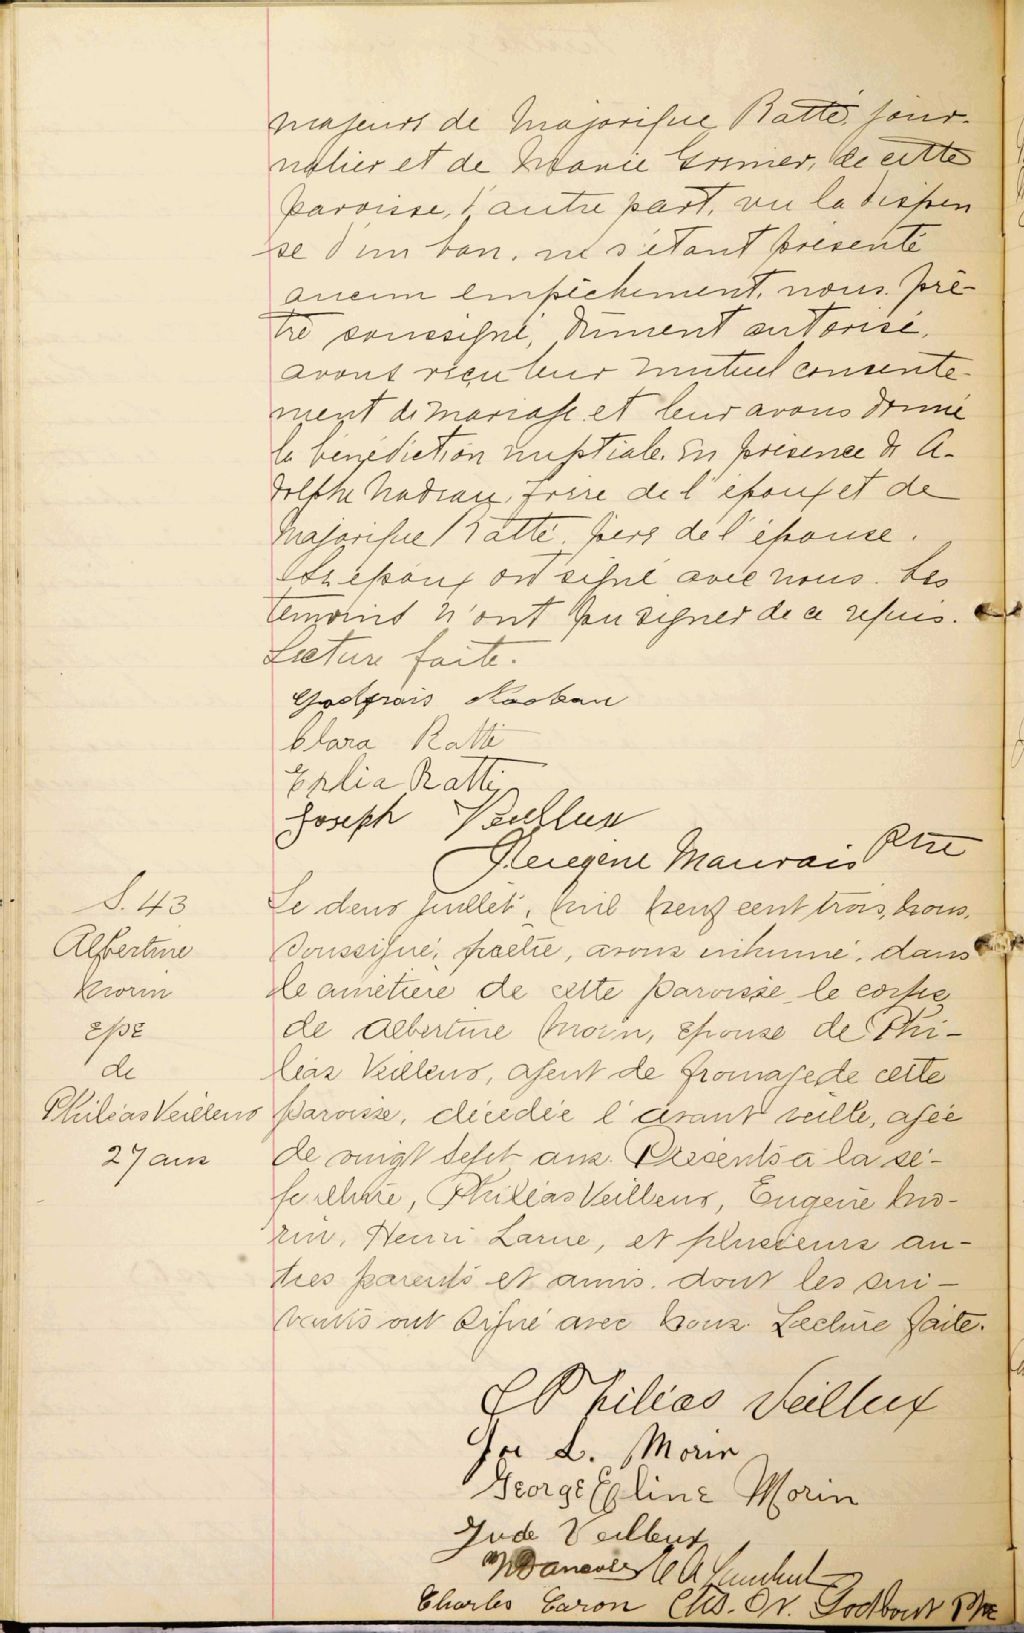 majeurs de Majorique Ratté, jour-
nalier et de Marie Grenier, de cette
paroisse, d'autre part, vu la dispen
se d'un ban, ne s'étant présenté
aucun empêchement, nous, prê-
tre soussigné, dûment autorisé,
avons reçu leur mutuel consente-
ment de mariage et leur avons donné
la bénédiction nuptiale, en présence de A-
dolphe Nadeau, frère de l'époux et de
Majorique Ratté, père de l'épouse.
Les époux ont signé avec nous. Les
témoins n'ont pu signer de ce requis.
Lecture faite.
Godfrois
Clara Ratté
Ratté
Joseph Veilleux
Peregène Mauvais Ptre
S. 43
Albertine
Morin
Epe
de
Philéas Veilleux
27 ans
Le deux juillet, mil neuf cent trois, nous,
soussigné, prêtre, avons inhumé, dans
le cimetière de cette paroisse, le corps
de Albertine Morin, épouse de Phi-
léas Veilleux, agent de fromage de cette
paroisse, décédée l'avant veille, agée
de vingt sept ans. Présents à la sé-
pulture, Philéas Veilleux, Eugène Mo-
rin, Henri Larue, et plusieurs au-
tres parents et amis dont les sui-
vants ont signé avec nous. Lecture faite.
Philéas Veilleux
Jos L. Morin
George Morin
Jude Veilleux
Charles Caron Chs. Od. Godbout Ptre